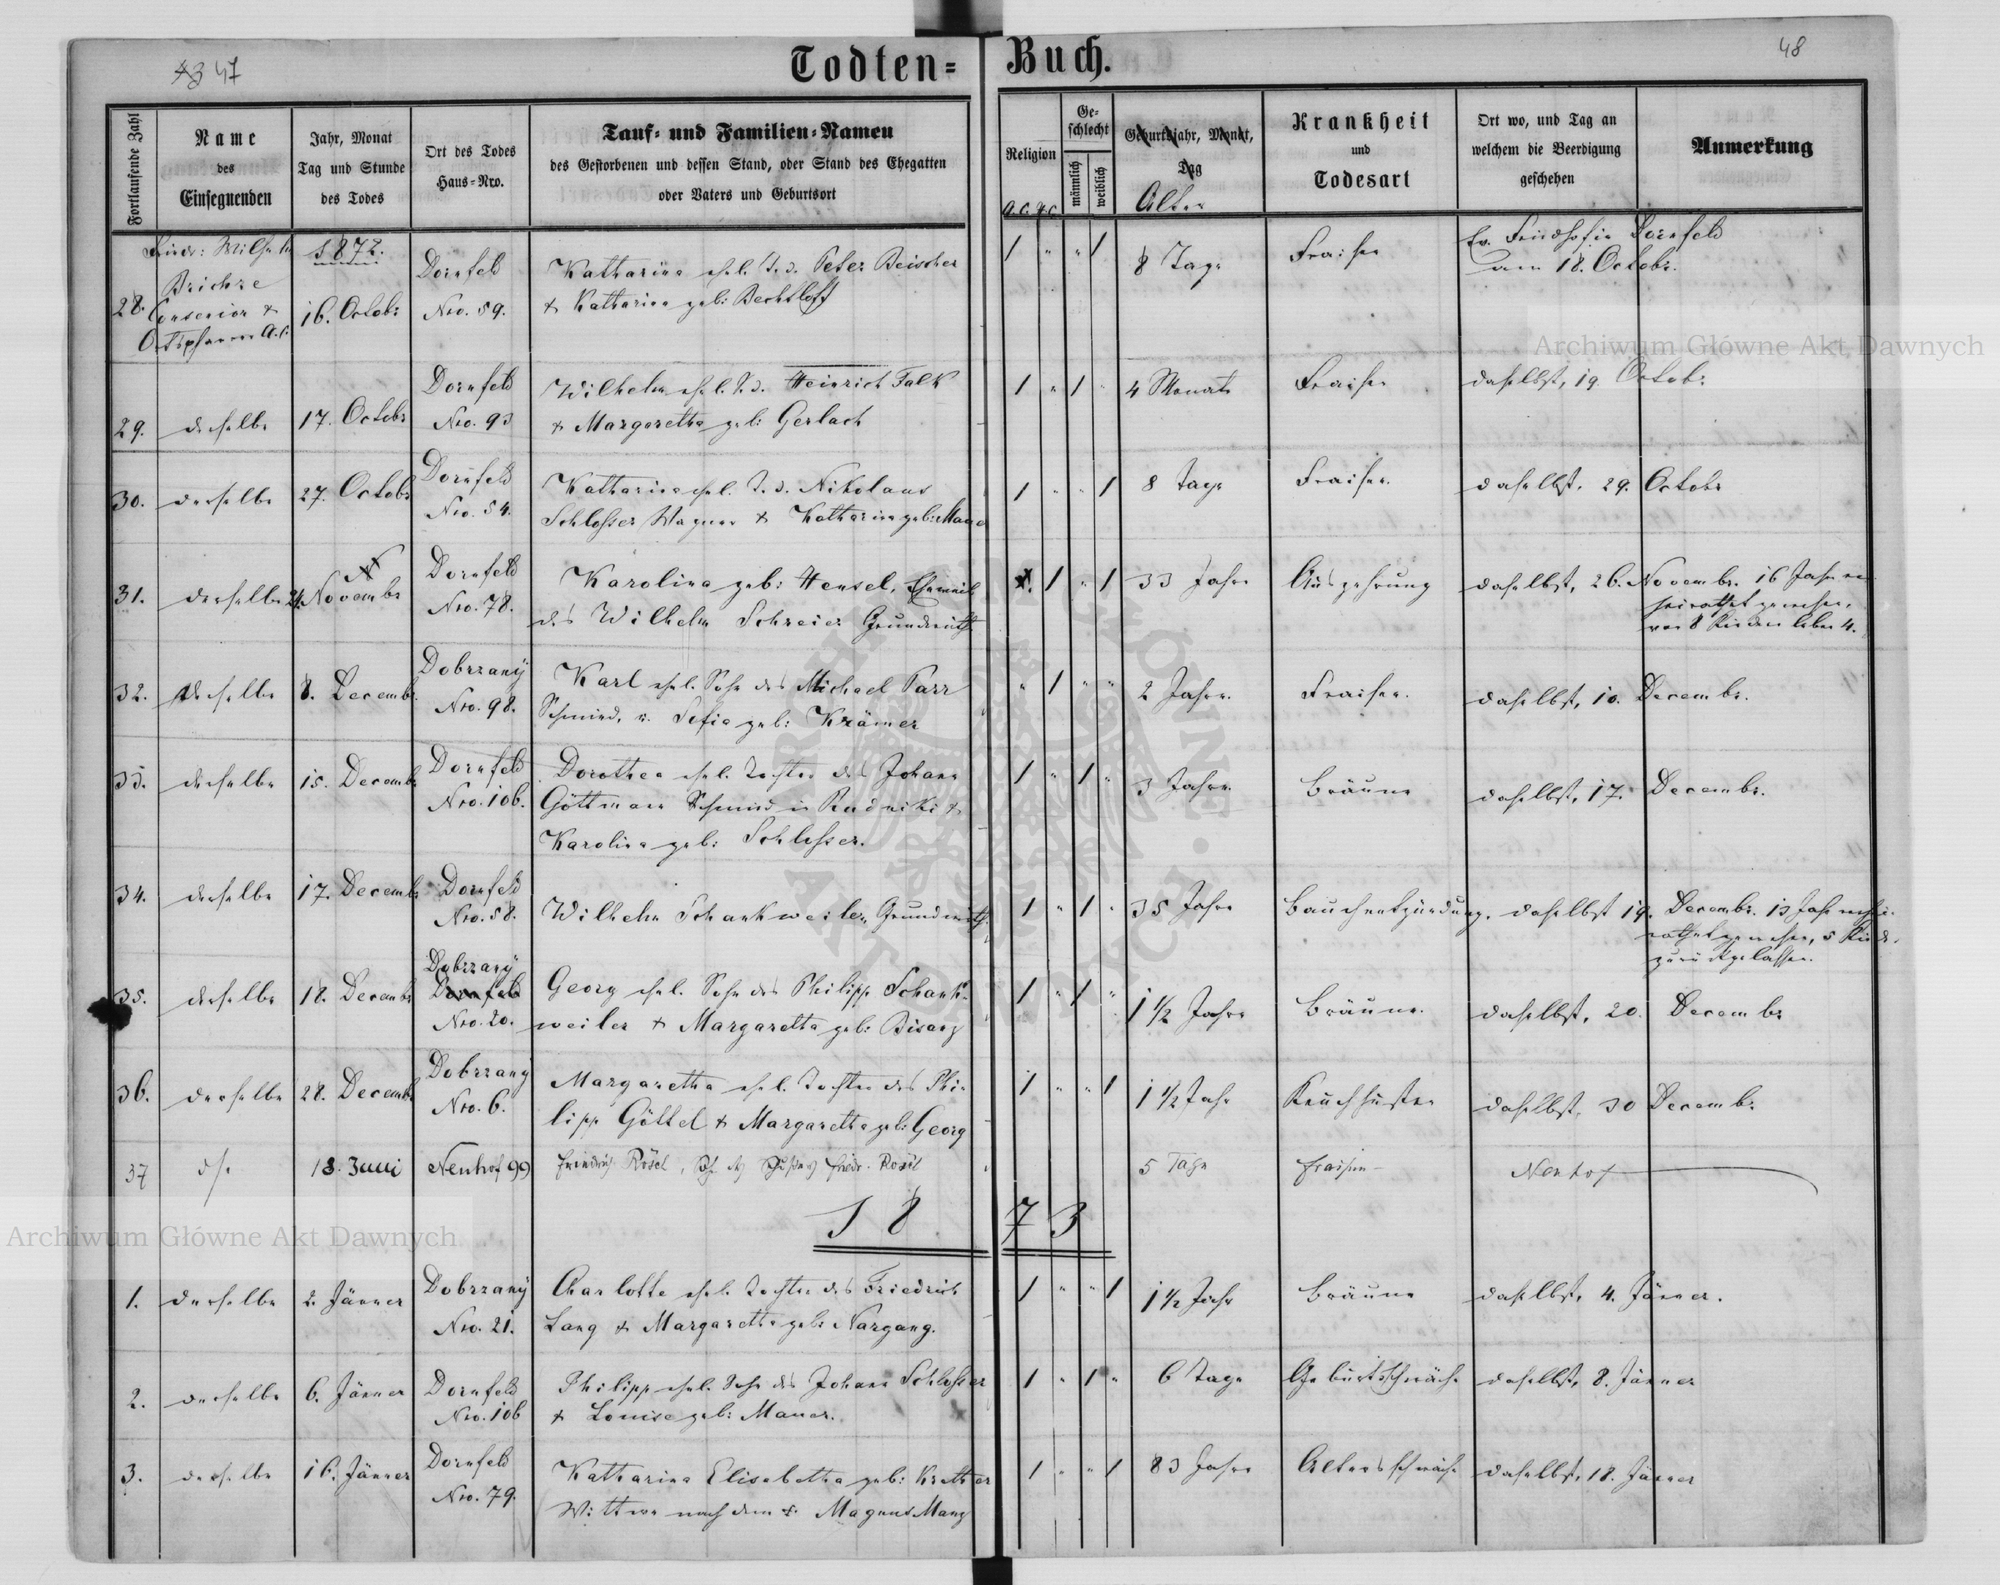 43 47
Todten=Buch.
48
Fortlaufende Zahl
Name
des
Einsegnenden
Jahr, Monat
Tag und Stunde
des Todes
Ort des Todes
Haus=Nro.
Tauf= und Familien=Namen
des Gestorbenen und dessen Stand, oder Stand des Ehegatten
oder Vaters und Geburtsort
Religion
A.C. H.C.
Ge-
schlecht
männlich
weiblich
Geburtsjahr, Monat,
Tag
Alter
Krankheit
und
Todesart
Ort wo, und Tag an
welchem die Beerdigung
geschehen
Anmerkung
28. Friedr: Wilhelm
Consenior &
Ortspfarrer A.C.
1872.
16. Octobr
Dornfeld
Nro. 59.
Katharina ehel. T. d. Peter Beischer
& Katharina geb: Bechtloff
1 " " 1
8 Tage
Fraisen
Ev. Friedhof in Dornfeld
am 18. Octobr.
29. derselbe 17. Octobr
Dornfeld
Nro. 93
Wilhelm ehel. S. d. Heinrich Falk
& Margaretha geb: Gerlach
1 " 1 "
4 Monate
Fraisen
daselbst, 19. Octobr.
30. derselbe 27. Octobr
Dornfeld
Nro. 54.
Katharina ehel. T. d. Nikolaus
Schlosser Wagner & Katharina geb:
1 " " 1
8 Tage
Fraisen.
daselbst, 29. Octobr
31. derselbe 24. Novembr
Dornfeld
Nro. 78.
Karolina geb: Hensel, Eheweib
des Wilhelm Schreier Grundwirth
1 " 1
33 Jahre
Auszehrung
daselbst, 26. Novembr. 16 Jahre ver-
heirathet gewesen,
von 8 Kindern leben 4.
32. derselbe 8. Decembr.
Dobrzany
Nro. 98.
Karl ehel. Sohn des Michael Parr
Schmied, u. Sofia geb: Krämer
" 1 " "
2 Jahre.
Fraisen.
daselbst, 10. Decembr.
33. derselbe 15. Decembr
Dornfeld
Nro. 106.
Dorothea ehel. Tochter des Johann
Göttmann Schmied in Rudniki &
Karolina geb: Schlosser.
1 " 1 "
3 Jahre.
Bräune
daselbst, 17. Decembr.
34. derselbe 17. Decembr
Dornfeld
Nro. 58.
Wilhelm Schankweiler Grundwirth
1 " 1 "
35 Jahre
Bauchentzündung.
daselbst 19. Decembr. 13 Jahre verhei-
rathet gewesen, 5 Kinder
zurückgelassen.
35. derselbe 18. Decembr
Dobrzany
Dornfeld
Nro. 20.
Georg ehel. Sohn des Philipp Schank-
weiler & Margaretha geb: Bisanz
1 " 1 "
1 1/2 Jahre
Bräune.
daselbst, 20. Decembr
36. derselbe 28. Decembr.
Dobrzany
Nro. 6.
Margaretha ehel. Tochter des Phi-
lipp Göttel & Margaretha geb: Georg
1 " " 1
1 1/2 Jahr
Keuchhusten
daselbst, 30 Decembr.
37 13. Juni Neuhof 99
Friedrich Rösel, Friedr. Rösel
5 Tage
Fraisen
Neuhof
1873
1. derselbe 2. Jänner
Dobrzany
Nro. 21.
Charlotte ehel. Tochter des Friedrich
Lang & Margaretha geb: Nargang.
1 " " 1
1 1/2 Jahr
Bräune
daselbst, 4. Jänner.
2. derselbe 6. Jänner
Dornfeld
Nro. 106
Philipp ehel. Sohn des Johann Schlosser
& Louise geb: Mauer.
1 " 1 "
6 Tage
Geburtsschwäche
daselbst, 8. Jänner
3. derselbe 16. Jänner
Dornfeld
Nro. 79.
Katharina Elisabetha geb:
Wittwe nach dem Magnus Manz
1 " " 1
83 Jahre
Altersschwäche
daselbst, 18. Jänner
Archiwum Główne Akt Dawnych
Archiwum Główne Akt Dawnych